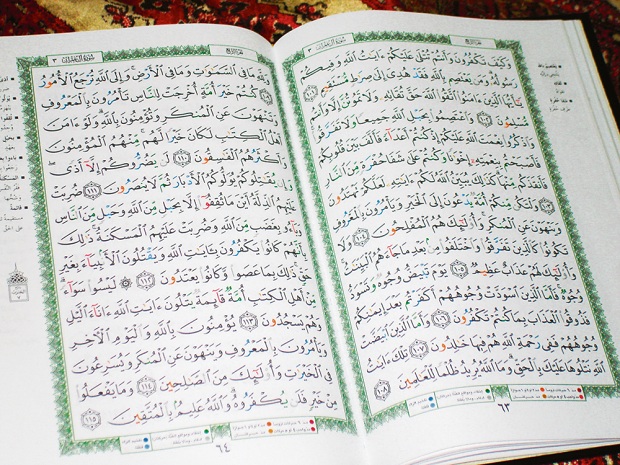 وَكَيْفَ تَكْفُرُونَ وَأَنتُمْ تُتْلَىٰ عَلَيْكُمْ ءَايَٰتُ ٱللَّهِ وَفِيكُمْ
رَسُولُهُۥ وَمَن يَعْتَصِم بِٱللَّهِ فَقَدْ هُدِىَ إِلَىٰ صِرَٰطٍ مُّسْتَقِيمٍ ١٠١
يَٰٓأَيُّهَا ٱلَّذِينَ ءَامَنُوا۟ ٱتَّقُوا۟ ٱللَّهَ حَقَّ تُقَاتِهِۦ وَلَا تَمُوتُنَّ إِلَّا وَأَنتُم
مُّسْلِمُونَ ١٠٢ وَٱعْتَصِمُوا۟ بِحَبْلِ ٱللَّهِ جَمِيعًا وَلَا تَفَرَّقُوا۟
وَٱذْكُرُوا۟ نِعْمَتَ ٱللَّهِ عَلَيْكُمْ إِذْ كُنتُمْ أَعْدَآءً فَأَلَّفَ بَيْنَ قُلُوبِكُمْ
فَأَصْبَحْتُم بِنِعْمَتِهِۦٓ إِخْوَٰنًا وَكُنتُمْ عَلَىٰ شَفَا حُفْرَةٍ مِّنَ ٱلنَّارِ
فَأَنقَذَكُم مِّنْهَا كَذَٰلِكَ يُبَيِّنُ ٱللَّهُ لَكُمْ ءَايَٰتِهِۦ لَعَلَّكُمْ تَهْتَدُونَ
١٠٣ وَلْتَكُن مِّنكُمْ أُمَّةٌ يَدْعُونَ إِلَى ٱلْخَيْرِ وَيَأْمُرُونَ بِٱلْمَعْرُوفِ
وَيَنْهَوْنَ عَنِ ٱلْمُنكَرِ وَأُو۟لَٰٓئِكَ هُمُ ٱلْمُفْلِحُونَ ١٠٤ وَلَا
تَكُونُوا۟ كَٱلَّذِينَ تَفَرَّقُوا۟ وَٱخْتَلَفُوا۟ مِنۢ بَعْدِ مَا جَآءَهُمُ ٱلْبَيِّنَٰتُ
وَأُو۟لَٰٓئِكَ لَهُمْ عَذَابٌ عَظِيمٌ ١٠٥ يَوْمَ تَبْيَضُّ وُجُوهٌ وَتَسْوَدُّ
وُجُوهٌ فَأَمَّا ٱلَّذِينَ ٱسْوَدَّتْ وُجُوهُهُمْ أَكَفَرْتُم بَعْدَ إِيمَٰنِكُمْ
فَذُوقُوا۟ ٱلْعَذَابَ بِمَا كُنتُمْ تَكْفُرُونَ ١٠٦ وَأَمَّا ٱلَّذِينَ ٱبْيَضَّتْ
وُجُوهُهُمْ فَفِى رَحْمَةِ ٱللَّهِ هُمْ فِيهَا خَٰلِدُونَ ١٠٧ تِلْكَ ءَايَٰتُ ٱللَّهِ
نَتْلُوهَا عَلَيْكَ بِٱلْحَقِّ وَمَا ٱللَّهُ يُرِيدُ ظُلْمًا لِّلْعَٰلَمِينَ ١٠٨
٦٣
وَلِلَّهِ مَا فِى ٱلسَّمَٰوَٰتِ وَمَا فِى ٱلْأَرْضِ وَإِلَى ٱللَّهِ تُرْجَعُ ٱلْأُمُورُ
١٠٩ كُنتُمْ خَيْرَ أُمَّةٍ أُخْرِجَتْ لِلنَّاسِ تَأْمُرُونَ بِٱلْمَعْرُوفِ
وَتَنْهَوْنَ عَنِ ٱلْمُنكَرِ وَتُؤْمِنُونَ بِٱللَّهِ وَلَوْ ءَامَنَ
أَهْلُ ٱلْكِتَٰبِ لَكَانَ خَيْرًا لَّهُم مِّنْهُمُ ٱلْمُؤْمِنُونَ
وَأَكْثَرُهُمُ ٱلْفَٰسِقُونَ ١١٠ لَن يَضُرُّوكُمْ إِلَّآ أَذًى
وَإِن يُقَٰتِلُوكُمْ يُوَلُّوكُمُ ٱلْأَدْبَارَ ثُمَّ لَا يُنصَرُونَ ١١١ ضُرِبَتْ
عَلَيْهِمُ ٱلذِّلَّةُ أَيْنَ مَا ثُقِفُوٓا۟ إِلَّا بِحَبْلٍ مِّنَ ٱللَّهِ وَحَبْلٍ مِّنَ ٱلنَّاسِ
وَبَآءُو بِغَضَبٍ مِّنَ ٱللَّهِ وَضُرِبَتْ عَلَيْهِمُ ٱلْمَسْكَنَةُ ذَٰلِكَ
بِأَنَّهُمْ كَانُوا۟ يَكْفُرُونَ بِـَٔايَٰتِ ٱللَّهِ وَيَقْتُلُونَ ٱلْأَنۢبِيَآءَ بِغَيْرِ
حَقٍّ ذَٰلِكَ بِمَا عَصَوا۟ وَّكَانُوا۟ يَعْتَدُونَ ١١٢ لَيْسُوا۟ سَوَآءً
مِّنْ أَهْلِ ٱلْكِتَٰبِ أُمَّةٌ قَآئِمَةٌ يَتْلُونَ ءَايَٰتِ ٱللَّهِ ءَانَآءَ ٱلَّيْلِ
وَهُمْ يَسْجُدُونَ ١١٣ يُؤْمِنُونَ بِٱللَّهِ وَٱلْيَوْمِ ٱلْءَاخِرِ
وَيَأْمُرُونَ بِٱلْمَعْرُوفِ وَيَنْهَوْنَ عَنِ ٱلْمُنكَرِ وَيُسَٰرِعُونَ
فِى ٱلْخَيْرَٰتِ وَأُو۟لَٰٓئِكَ مِنَ ٱلصَّٰلِحِينَ ١١٤ وَمَا يَفْعَلُوا۟
مِنْ خَيْرٍ فَلَن يُكْفَرُوهُ وَٱللَّهُ عَلِيمٌۢ بِٱلْمُتَّقِينَ ١١٥
٦٤